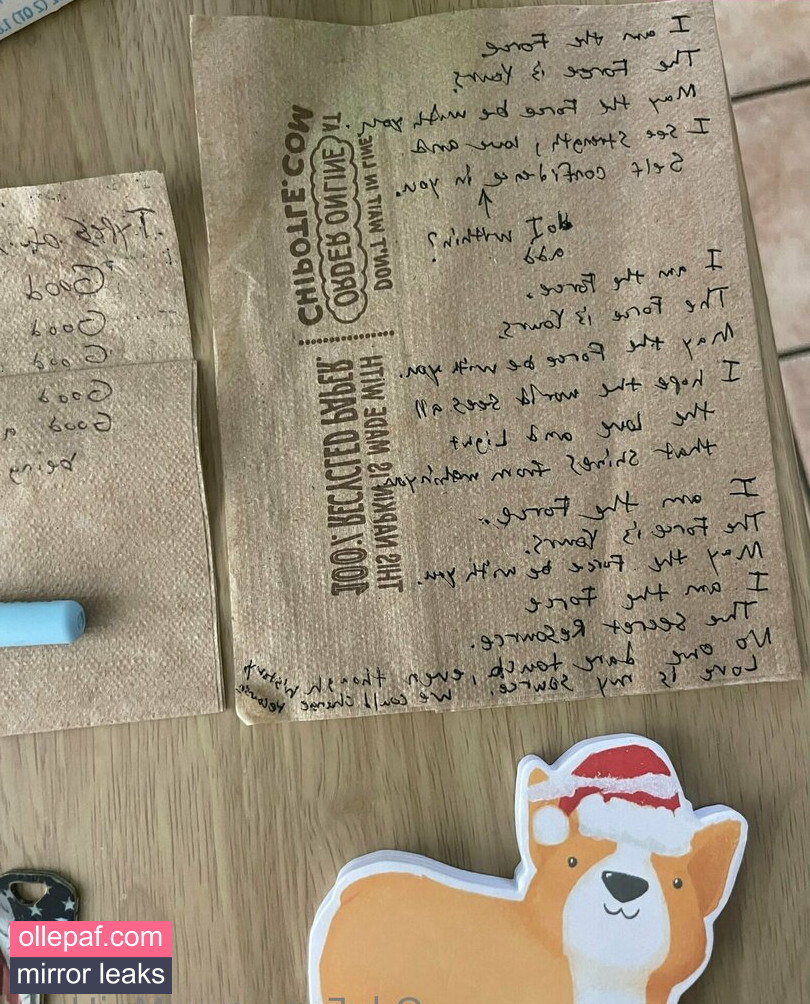 I am the Force
The Force is Yours.
May the Force be with you.
I see strength, love and
Self confidence in you.
do I within?
add
I am the Force.
The Force is Yours.
May the Force be with you.
I hope the world sees all
the love and Light
that shines from within you
I am the Force.
The Force is Yours.
May the Force be with you.
I am the Force
The Secret Resource.
No one dare touch, even though
Love is my source. We could change
history
CHIPOTLE.COM
ORDER ONLINE AT
DON'T WAIT IN LINE.
100% RECYCLED PAPER.
THIS NAPKIN IS MADE WITH
I
Good
Good
Good
Good
Good a
being
ollepaf.com
mirror leaks